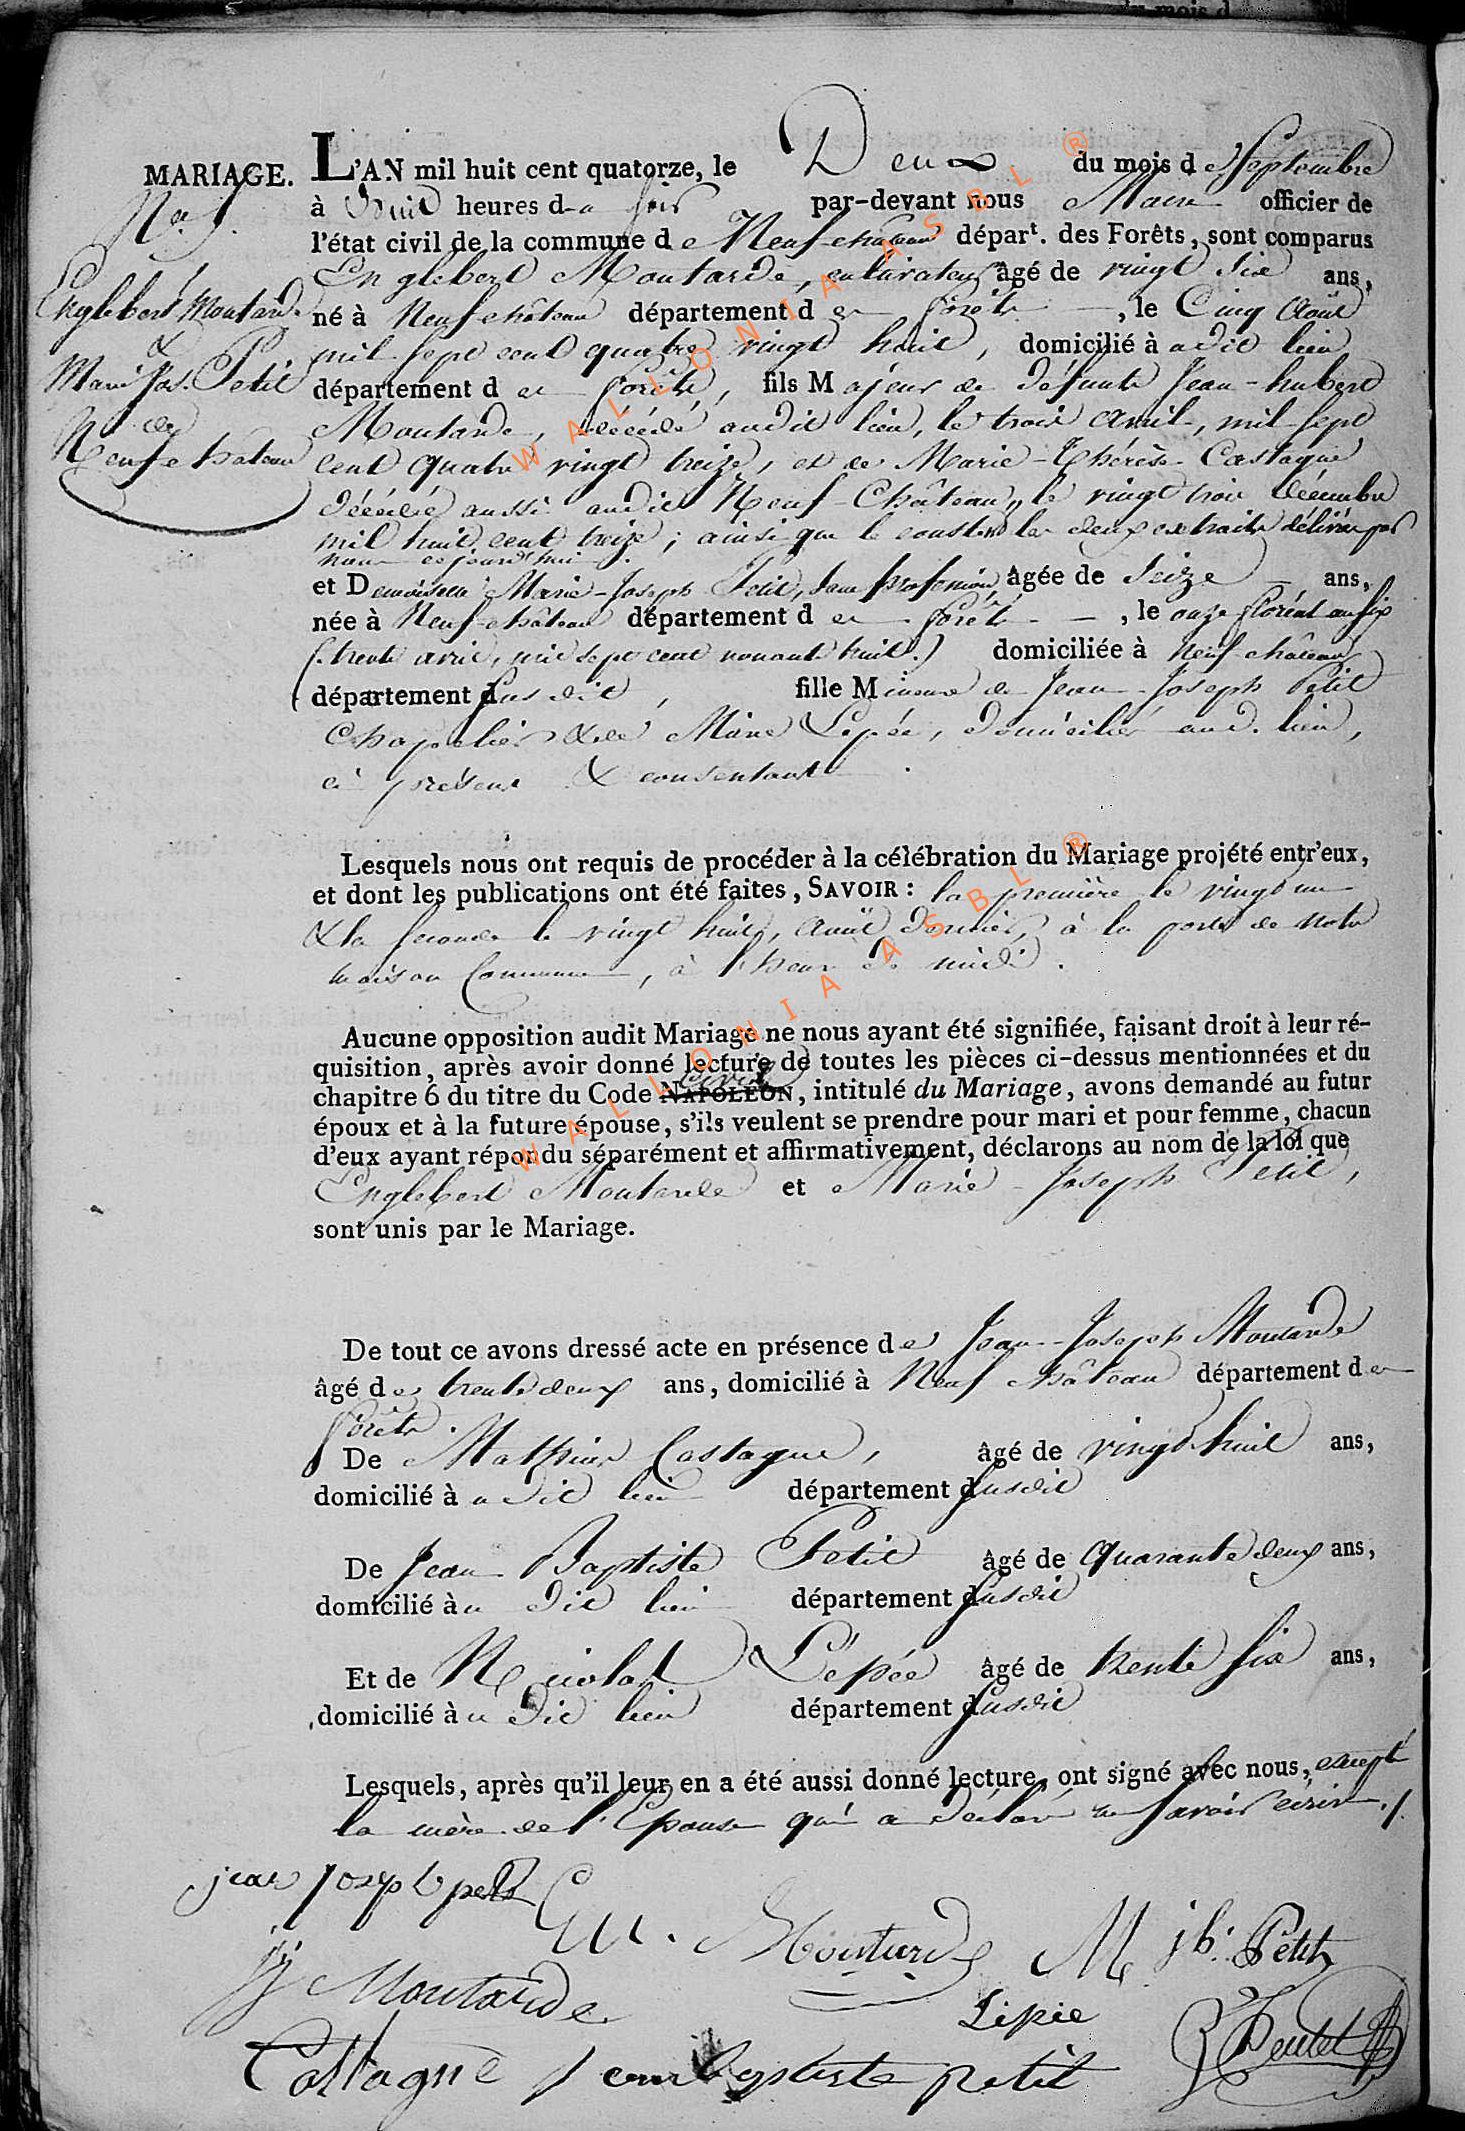 MARIAGE.
Englebert Moutarde
&
Marie Jos. Petit
de
Neufchateau
L'AN mil huit cent quatorze, le Deux du mois de Septembre
à huit heures du soir par-devant nous Maire officier de
l'état civil de la commune de Neufchateau départ. des Forêts, sont comparus
Englebert Moutarde, cultivateur âgé de vingt six ans,
né à Neufchâteau département des forêts, le Cinq Août
mil sept cent quatre vingt huit, domicilié à udit lieu
département des forêts, fils Majeur de défunts Jean-hubert
Moutarde, décédé audit lieu, le trois avril, mil sept
cent quatre vingt treize, et de Marie-Thérèse Castagne
décédée aussi audit Neuf-Château, le vingt trois décembre
mil huit cent treize; ainsi que le constent les deux extraits délivrés par
nous cejourd'hui.
et Demoiselle Marie-Joseph Petit, sans profession, âgée de Seize ans,
née à Neufchâteau département des forêts, le onze floréal an six
(trente avril, mil sept cent nonante huit.) domiciliée à Neufchâteau
département susdit, fille Mineure de Jean-Joseph Petit
chapelier & de Marie Lepée, domiciliés aud. lieu,
ci présens & consentants.
Lesquels nous ont requis de procéder à la célébration du Mariage projété entr'eux,
et dont les publications ont été faites, SAVOIR: la première le vingt un
& la seconde le vingt huit, Août dernier, à la porte de notre
maison Commune, à l'heure de midi.
Aucune opposition audit Mariage ne nous ayant été signifiée, faisant droit à leur ré-
quisition, après avoir donné lecture de toutes les pièces ci-dessus mentionnées et du
civil
chapitre 6 du titre du Code NAPOLÉON, intitulé du Mariage, avons demandé au futur
époux et à la future épouse, s'ils veulent se prendre pour mari et pour femme, chacun
d'eux ayant répondu séparément et affirmativement, déclarons au nom de la loi que
Englebert Moutarde et Marie-Joseph Petit,
sont unis par le Mariage.
De tout ce avons dressé acte en présence de Jean-Joseph Moutarde
âgé de trente deux ans, domicilié à Neuf château département des
forêts.
De Mathieu Castagne, âgé de vingt huit ans,
domicilié à udit lieu département susdit
De Jean Baptiste Petit âgé de quarante deux ans,
domicilié à udit lieu département susdit
Et de Nicolas Lépée âgé de trente six ans,
domicilié à udit lieu département susdit
Lesquels, après qu'il leur en a été aussi donné lecture, ont signé avec nous, excepté
la mère de l'Epouse qui a déclaré ne savoir écrire./.
jean joseph petit
E M. Moutarde M jh. Petit
jj Moutarde Lipée
Castagne jean baptiste petit
WALLONIA ASBL ®
WALLONIA ASBL ®